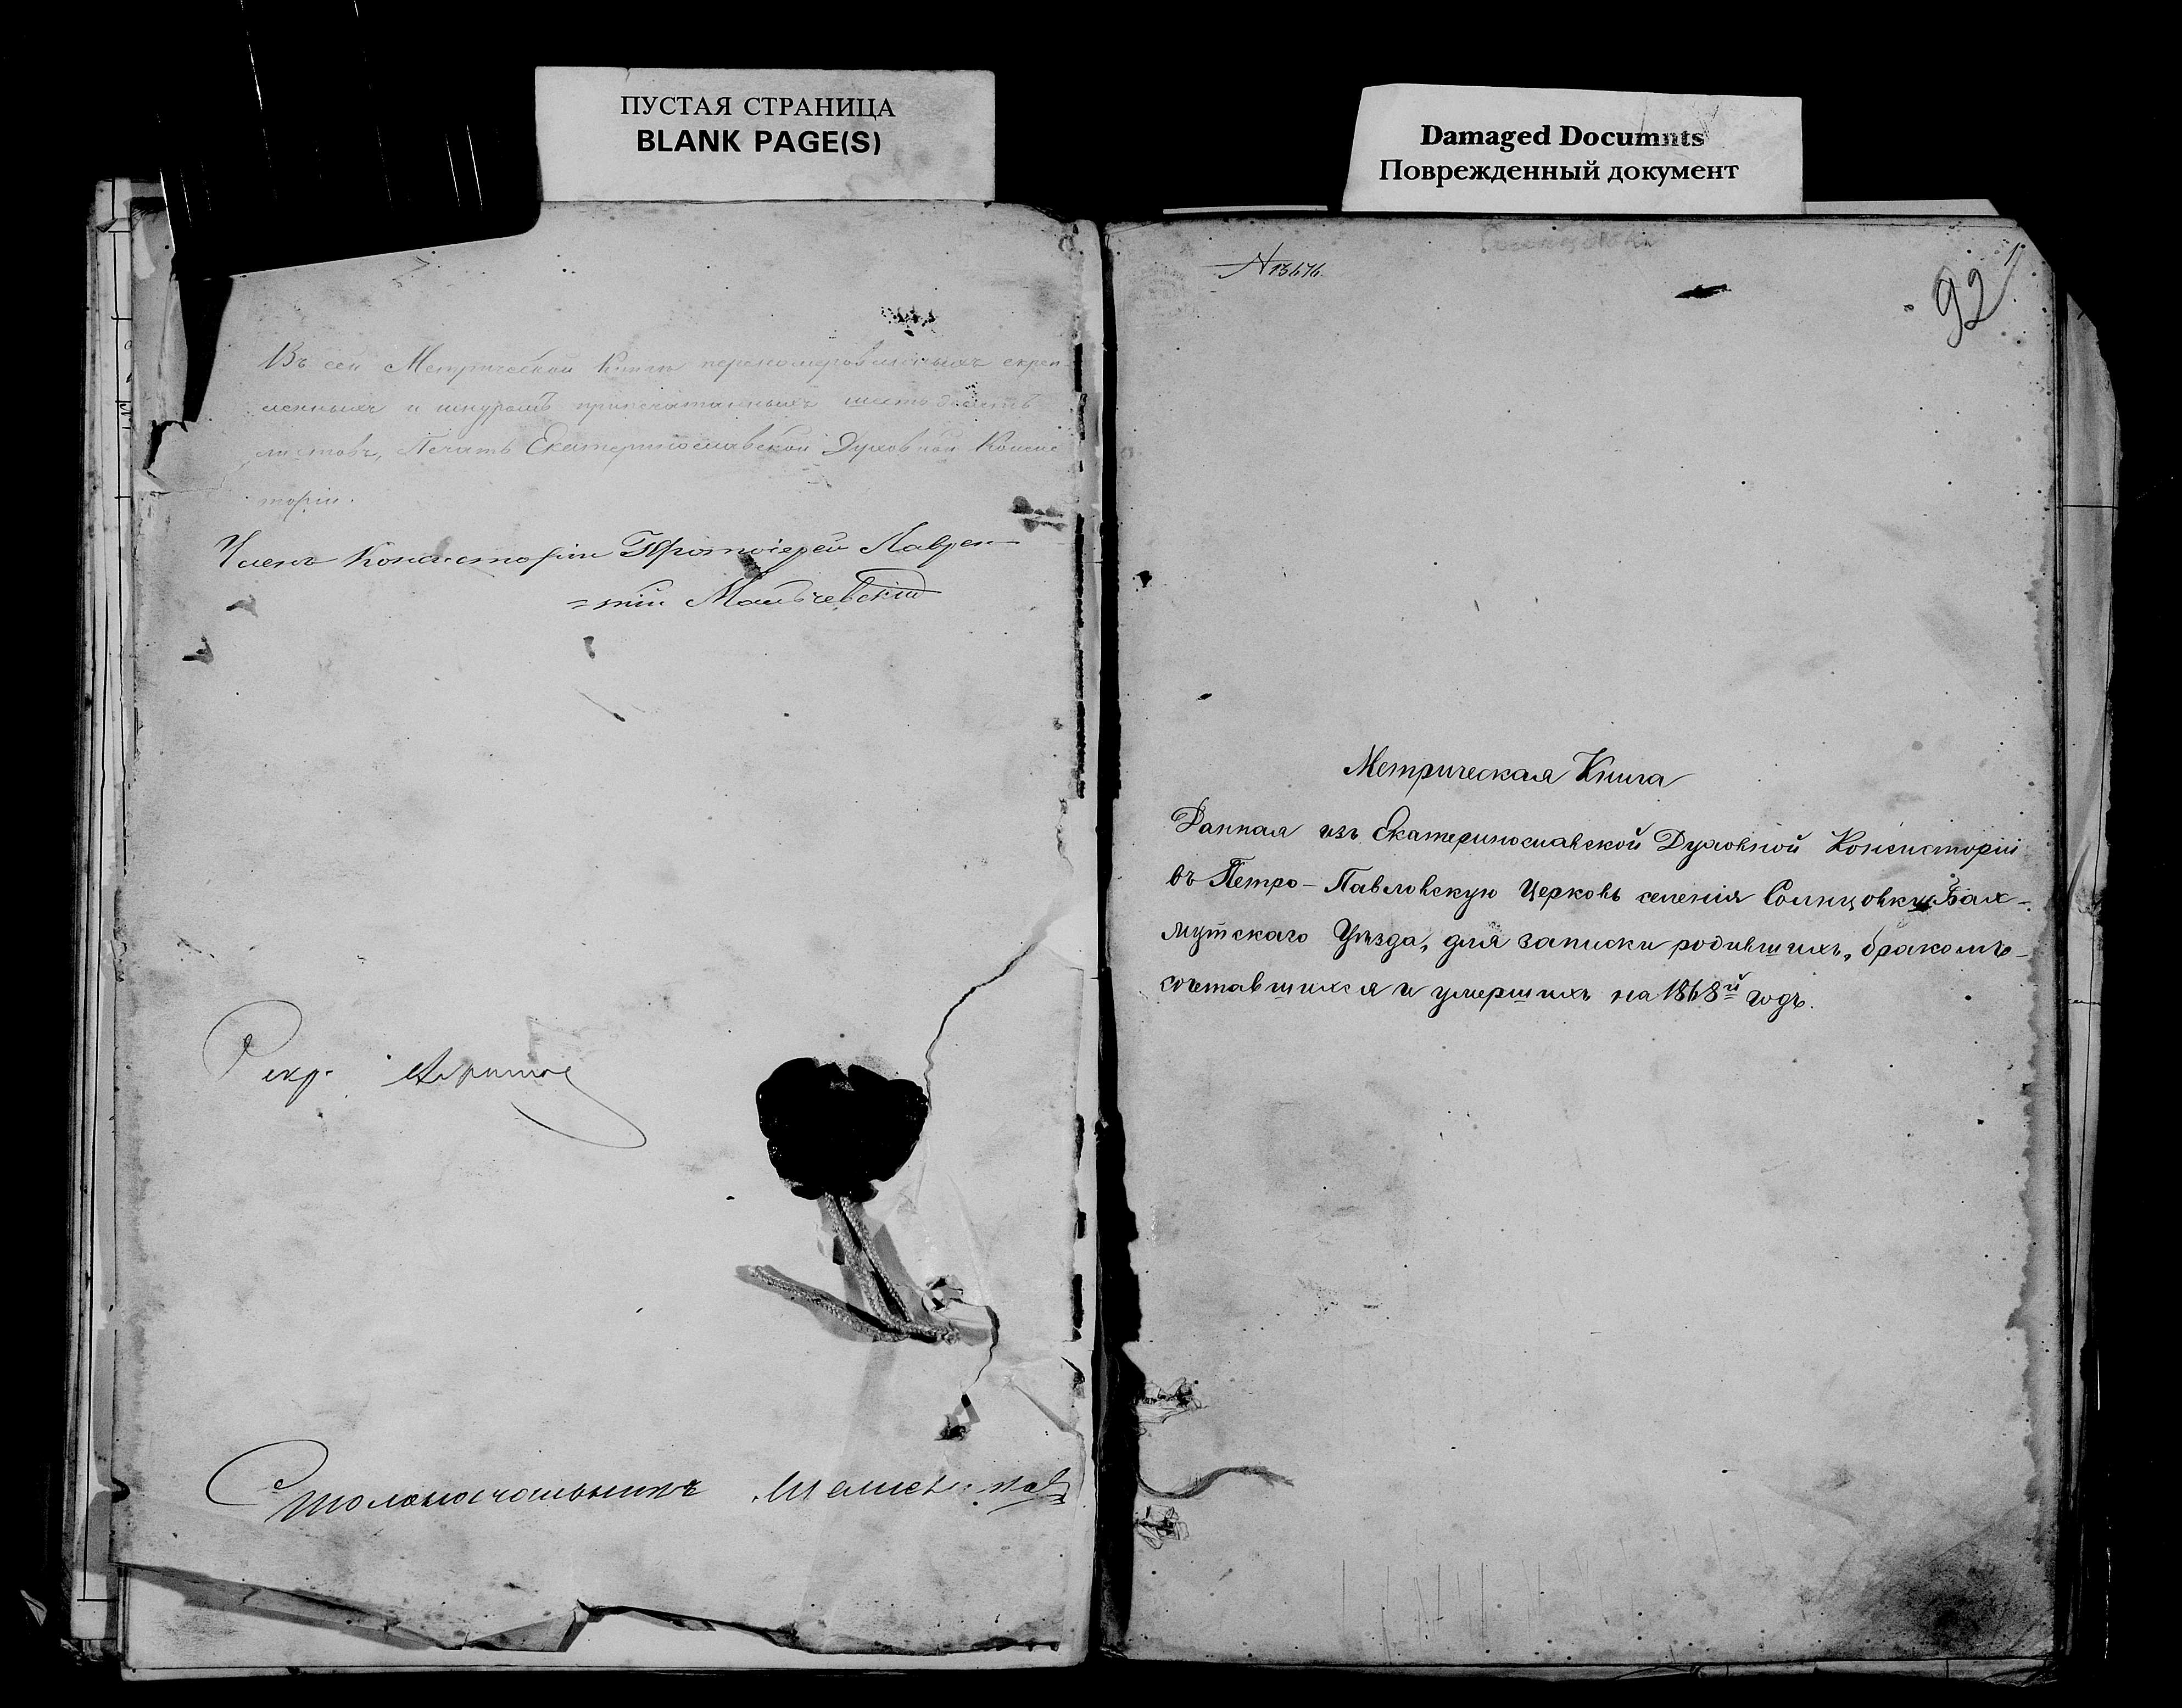 ПУСТАЯ СТРАНИЦА
BLANK PAGE(S)
Въ сей Метрической Книгѣ перенумерованныхъ скреп-
ленныхъ и шнуромъ припечатанныхъ
листовъ, Печать Екатеринославской Духовной Консис
торіи.
Членъ Консисторіи Протоіерей Лаврен-
=тій
Секр.
Столоначальникъ
Damaged Documnts
Поврежденный документ
92
1
N 13676.
Метрическая Книга
Данная изъ Екатеринославской Духовной Консисторіи
въ Петро-Павловскую Церковь селенія Солнцовки Бах-
мутскаго Уѣзда, для записки родившихъ, бракомъ-
сочетавшихся и умершихъ на 1868й годъ.